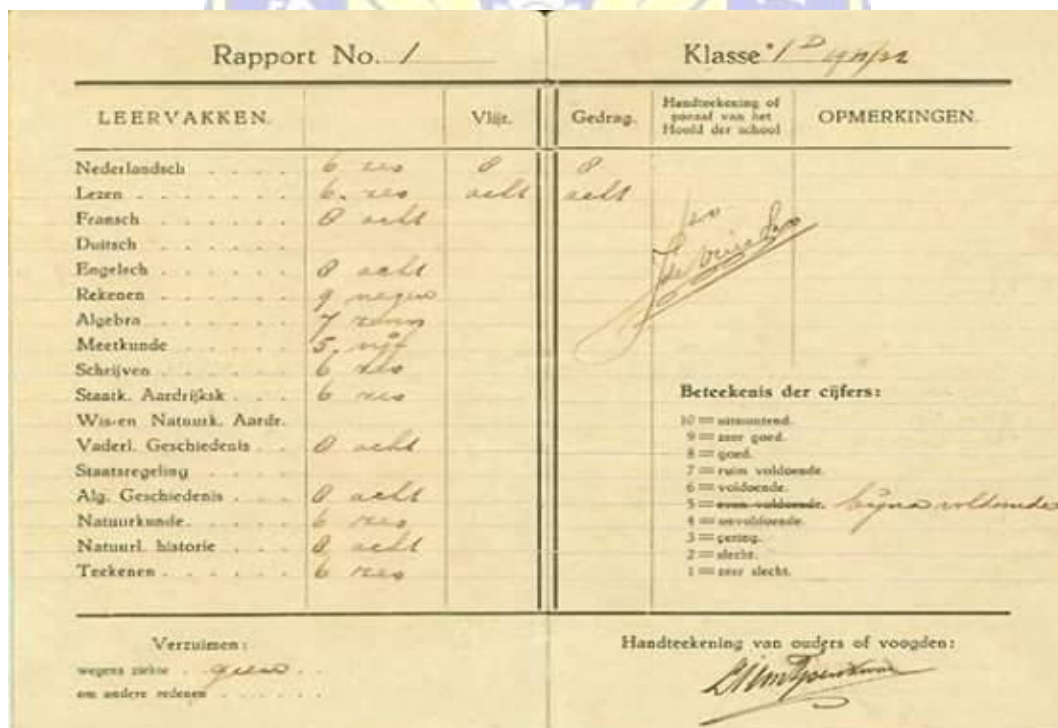 Rapport No. 1 Klasse 1 D
LEERVAKKEN. Vlijt. Gedrag. Handteekening of paraaf van het Hoofd der school OPMERKINGEN.
Nederlandsch 6 zes 8 8
Lezen 6. zes acht acht
Fransch 8 acht
Duitsch
Engelsch 8 acht
Rekenen 9 negen
Algebra 7 zeven
Meetkunde 5. vijf
Schrijven 6 zes
Staatk. Aardrijksk 6 zes
Wis-en Natuurk. Aardr.
Vaderl. Geschiedenis 8 acht
Staatsregeling
Alg. Geschiedenis 8 acht
Natuurkunde. 6 zes
Natuurl. historie 8 acht
Teekenen 6 zes
Beteekenis der cijfers:
10 = uitmuntend.
9 = zeer goed.
8 = goed.
7 = ruim voldoende.
6 = voldoende.
5 = even voldoende. bijna voldoende
4 = onvoldoende.
3 = gering.
2 = slecht.
1 = zeer slecht.
Verzuimen:
wegens ziekte geen
om andere redenen
Handteekening van ouders of voogden: